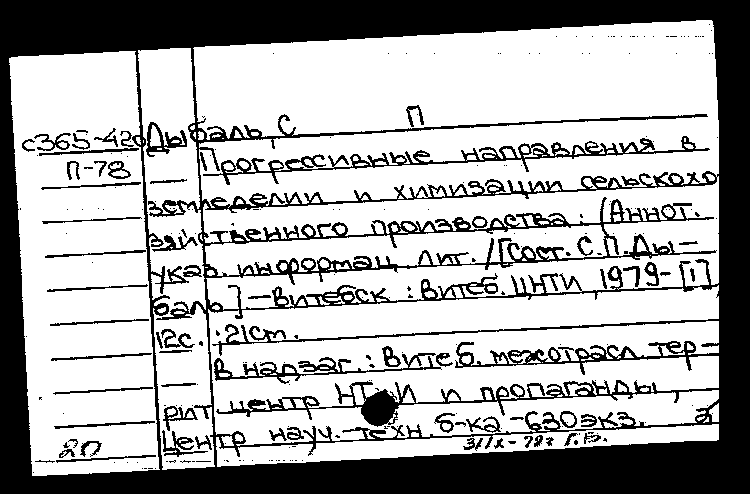 Дыбаль, С П
с365-420
П-78
Прогрессивные направления в
земледелии и химизации сельскохо-
зяйственного производства: (Аннот.
указ. информац. лит. /[Сост. С.П. Ды-
баль]—Витебск: Витеб. ЦНТИ, 1979-[1],
12с.; 21cm.
В надзаг.: Витеб. межотрасл. тер-
рит. центр НТ И и пропаганды,
Центр науч.-техн. б-ка.-630экз.
20